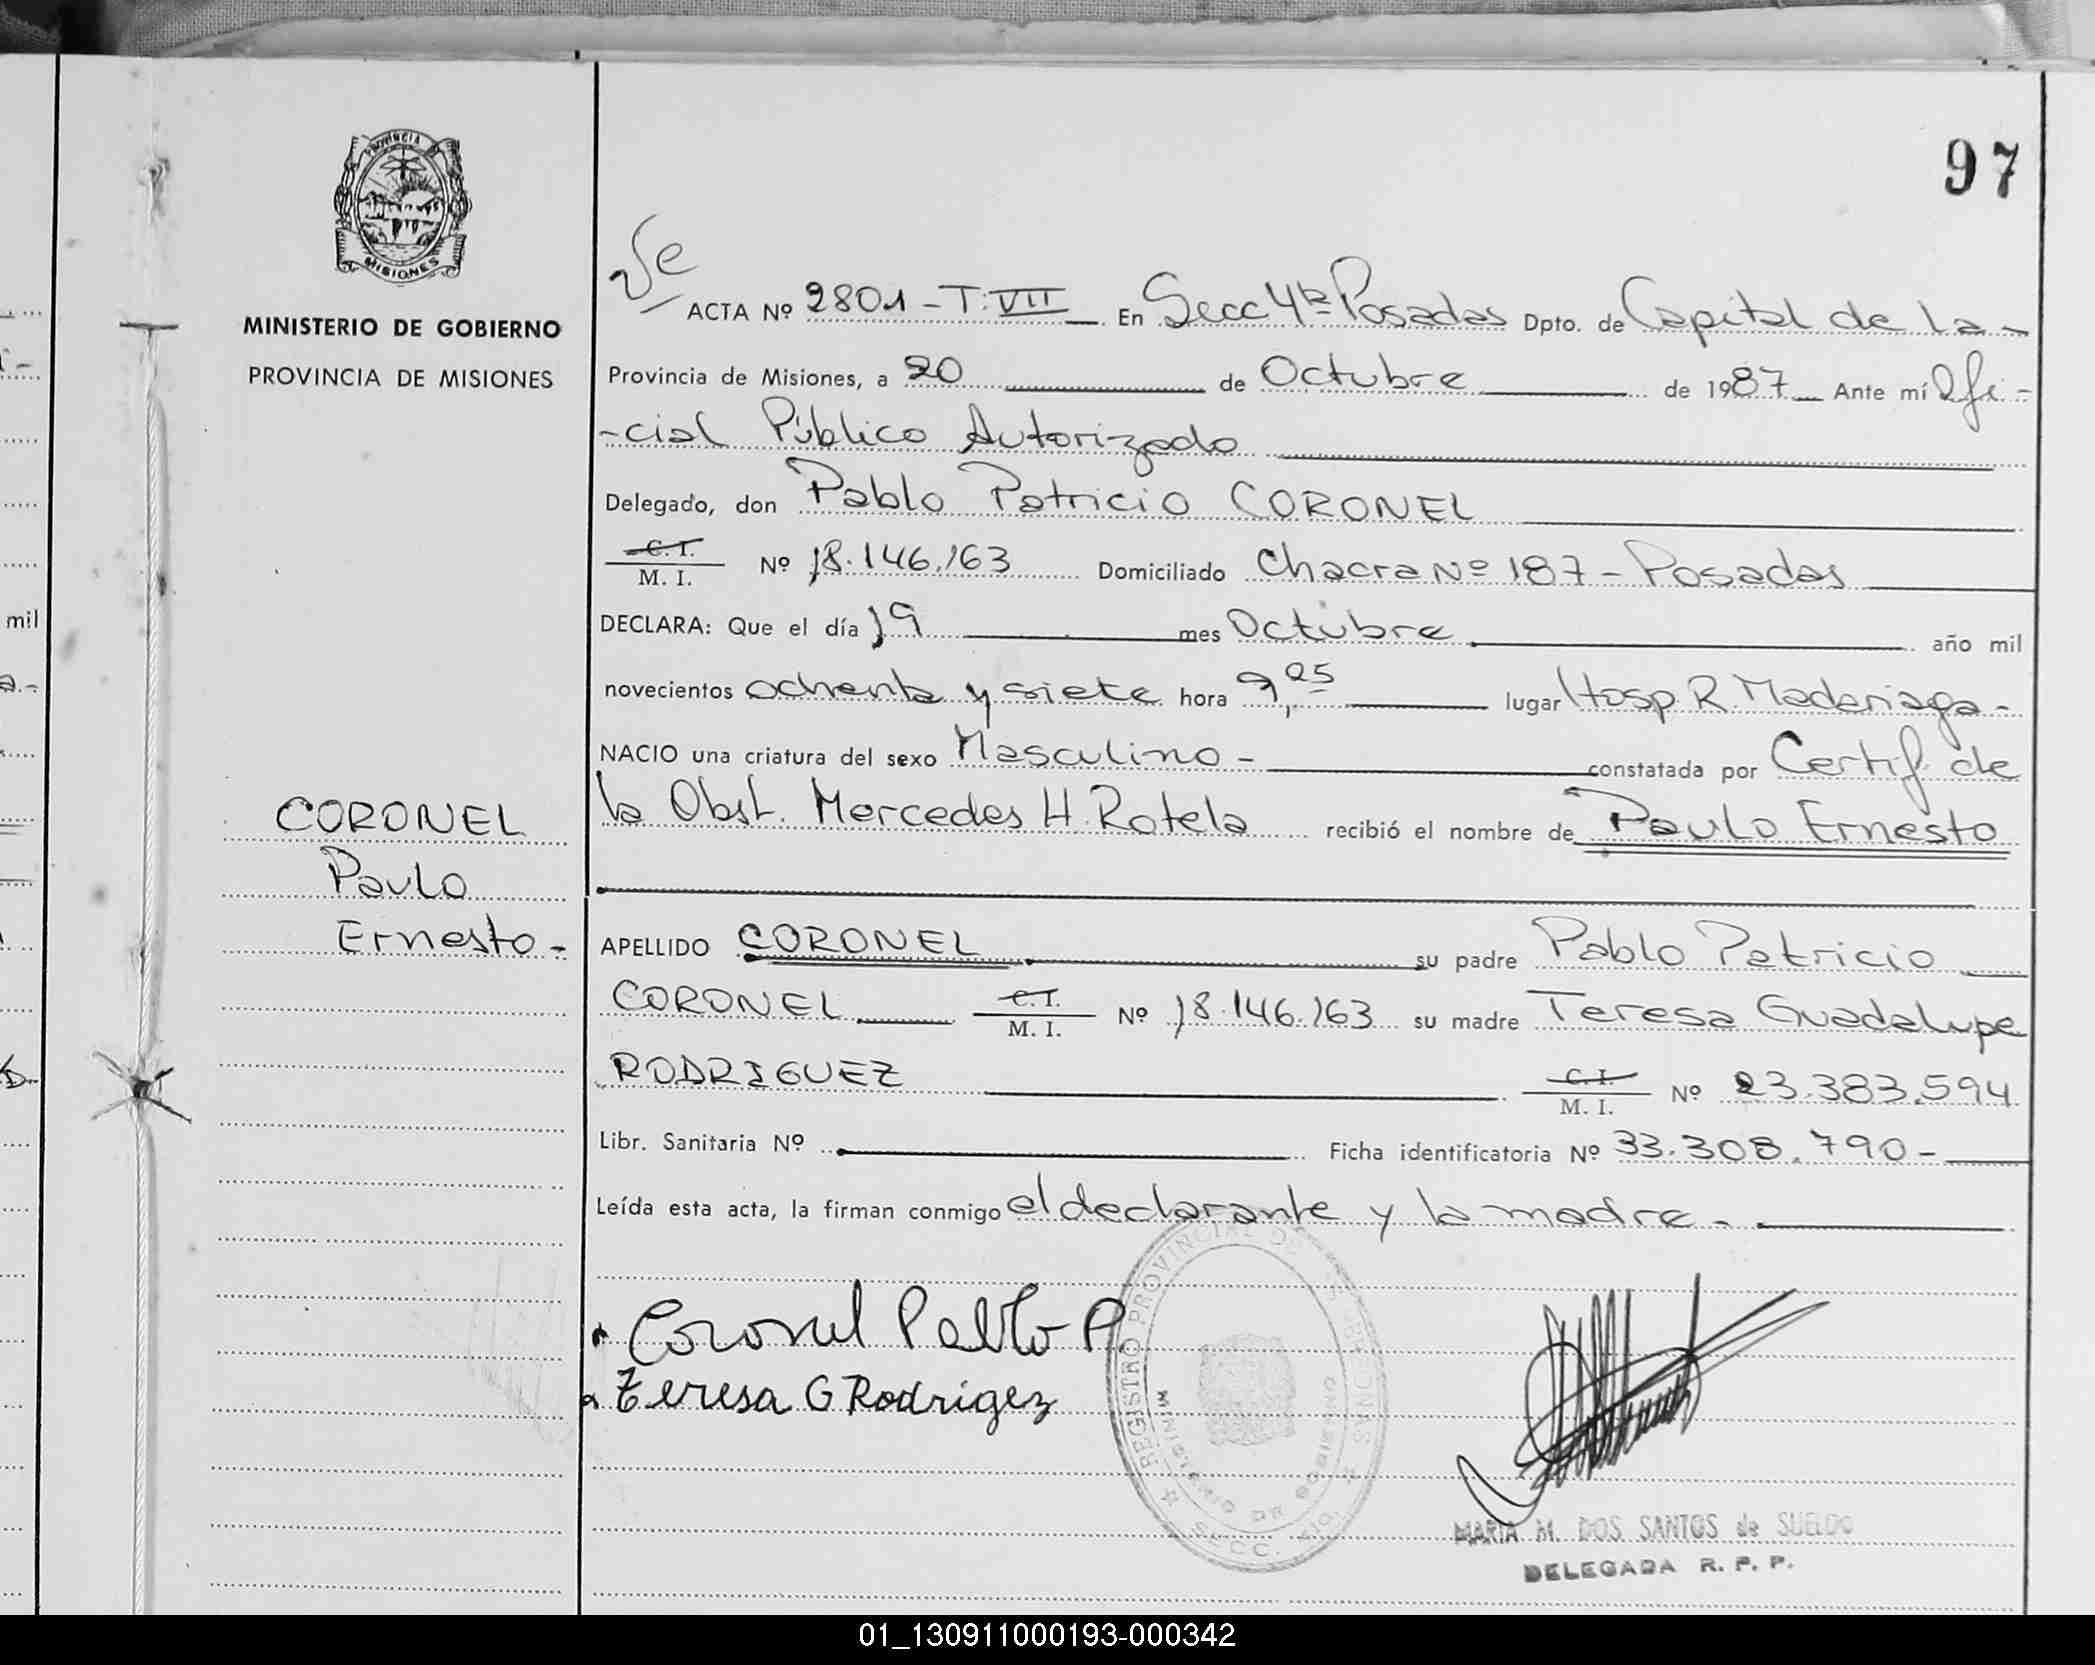 97
PROVINCIA DE
MISIONES
MINISTERIO DE GOBIERNO
PROVINCIA DE MISIONES
ACTA Nº 2801 - T: VII En Secc 4ta Posadas Dpto. de Capital de la -
Provincia de Misiones, a 20 de Octubre de 1987 Ante mí Ofi-
-cial Público Autorizado
Delegado, don Pablo Patricio CORONEL
C. I. / M. I. Nº 18.146.163 Domiciliado Chacra Nº 187 - Posadas
DECLARA: Que el día 19 mes Octubre año mil
novecientos ochenta y siete hora 9,05 lugar Hosp R. Madariaga -
NACIO una criatura del sexo Masculino - constatada por Certif. de
la Obst. Mercedes H. Rotela recibió el nombre de Paulo Ernesto
CORONEL
Paulo
Ernesto -
APELLIDO CORONEL su padre Pablo Patricio
CORONEL C. I. / M. I. Nº 18.146.163 su madre Teresa Guadalupe
RODRIGUEZ C. I. / M. I. Nº 23.383.594
Libr. Sanitaria Nº Ficha identificatoria Nº 33.308.790 -
Leída esta acta, la firman conmigo el declarante y la madre -
Coronel Pablo P
Teresa G Rodrigez
REGISTRO PROVINCIAL DE LAS PERSONAS
MINISTERIO DE GOBIERNO
SECC. 4ta
MARIA M. DOS SANTOS de SUELDO
DELEGADA R. P. P.
mil
01_130911000193-000342